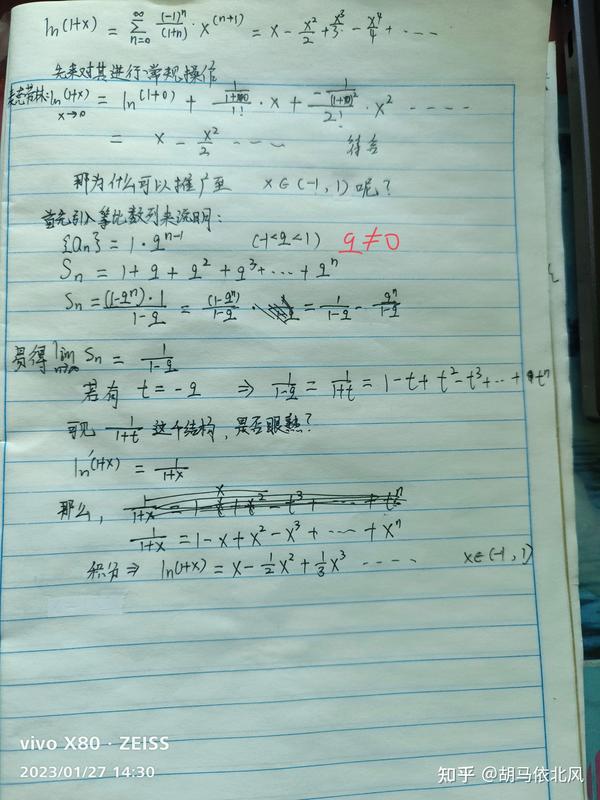 ln(1+x) = ∑_{n=0}^{∞} (-1)^n/(1+n) · x^(n+1) = x - x²/2 + x³/3 - x⁴/4 + ····
先来对其进行常规操作
麦克劳林: ln(1+x) x→0 = ln(1+0) + (1/(1+0))/1! · x + (-1/(1+0)²)/2! · x² ····
= x - x²/2 ···· 符合
那为什么可以推广至 x∈(-1, 1) 呢?
首先引入等比数列来说明:
{an} = 1·q^(n-1) (-1<q<1) q≠0
Sn = 1 + q + q² + q³ + ··· + q^n
Sn = (1-q^n)·1/(1-q) = (1-q^n)/(1-q) · = 1/(1-q) - q^n/(1-q)
易得 lim n→∞ Sn = 1/(1-q)
若有 t = -q ⇒ 1/(1-q) = 1/(1+t) = 1 - t + t² - t³ + ··· + t^n
可见 1/(1+t) 这个结构, 是否眼熟?
ln'(1+x) = 1/(1+x)
那么,
1/(1+x) = 1 - x + x² - x³ + ···· + x^n
积分 ⇒ ln(1+x) = x - 1/2 x² + 1/3 x³ ···· x∈(-1, 1)
vivo X80 · ZEISS
2023/01/27 14:30
知乎 @胡马依北风